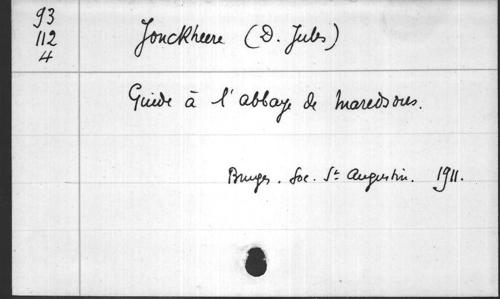 93
112
4
Jonckheere (D. Jules)
Guide à l'abbaye de Maredsous.
Bruges. Soc. St Augustin. 1911.